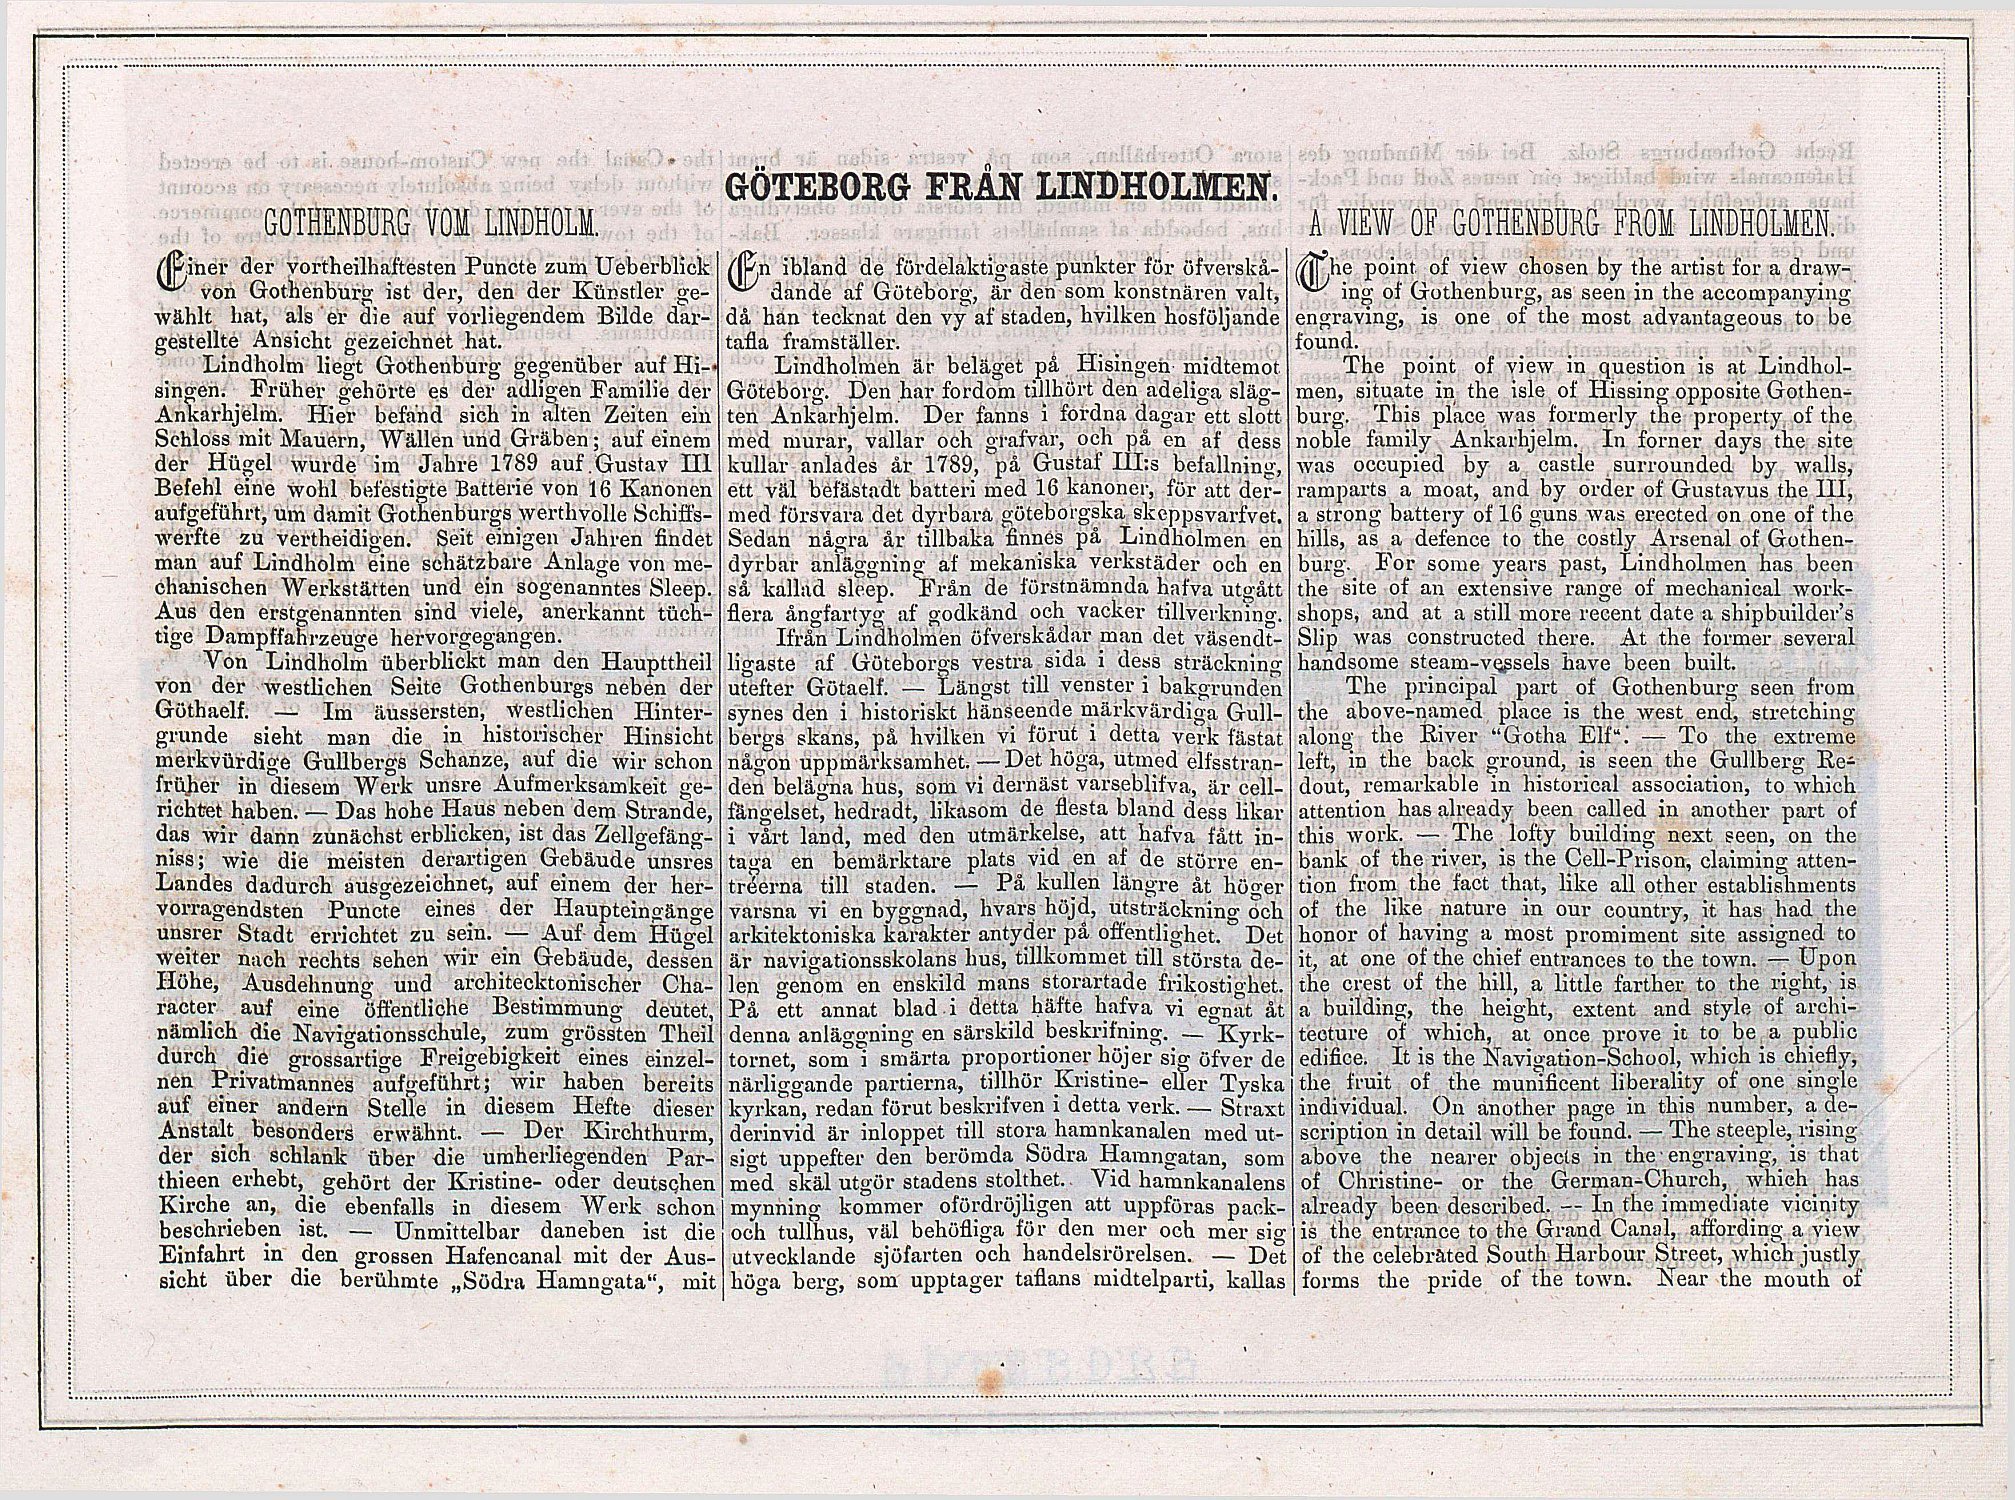 GÖTEBORG FRÅN LINDHOLMEN.
GOTHENBURG VOM LINDHOLM.
Einer der vortheilhaftesten Puncte zum Ueberblick
von Gothenburg ist der, den der Künstler ge-
wählt hat, als er die auf vorliegendem Bilde dar-
gestellte Ansicht gezeichnet hat.
Lindholm liegt Gothenburg gegenüber auf Hi-
singen. Früher gehörte es der adligen Familie der
Ankarhjelm. Hier befand sich in alten Zeiten ein
Schloss mit Mauern, Wällen und Gräben; auf einem
der Hügel wurde im Jahre 1789 auf Gustav III
Befehl eine wohl befestigte Batterie von 16 Kanonen
aufgeführt, um damit Gothenburgs werthvolle Schiffs-
werfte zu vertheidigen. Seit einigen Jahren findet
man auf Lindholm eine schätzbare Anlage von me-
chanischen Werkstätten und ein sogenanntes Sleep.
Aus den erstgenannten sind viele, anerkannt tüch-
tige Dampffahrzeuge hervorgegangen.
Von Lindholm überblickt man den Haupttheil
von der westlichen Seite Gothenburgs neben der
Göthaelf. — Im äussersten, westlichen Hinter-
grunde sieht man die in historischer Hinsicht
merkvürdige Gullbergs Schanze, auf die wir schon
früher in diesem Werk unsre Aufmerksamkeit ge-
richtet haben. — Das hohe Haus neben dem Strande,
das wir dann zunächst erblicken, ist das Zellgefäng-
niss; wie die meisten derartigen Gebäude unsres
Landes dadurch ausgezeichnet, auf einem der her-
vorragendsten Puncte eines der Haupteingänge
unsrer Stadt errichtet zu sein. — Auf dem Hügel
weiter nach rechts sehen wir ein Gebäude, dessen
Höhe, Ausdehnung und architecktonischer Cha-
racter auf eine öffentliche Bestimmung deutet,
nämlich die Navigationsschule, zum grössten Theil
durch die grossartige Freigebigkeit eines einzel-
nen Privatmannes aufgeführt; wir haben bereits
auf einer andern Stelle in diesem Hefte dieser
Anstalt besonders erwähnt. — Der Kirchthurm,
der sich schlank über die umherliegenden Par-
thieen erhebt, gehört der Kristine- oder deutschen
Kirche an, die ebenfalls in diesem Werk schon
beschrieben ist. — Unmittelbar daneben ist die
Einfahrt in den grossen Hafencanal mit der Aus-
sicht über die berühmte „Södra Hamngata“, mit
En ibland de fördelaktigaste punkter för öfverskå-
dande af Göteborg, är den som konstnären valt,
då han tecknat den vy af staden, hvilken hosföljande
tafla framställer.
Lindholmen är beläget på Hisingen midtemot
Göteborg. Den har fordom tillhört den adeliga släg-
ten Ankarhjelm. Der fanns i fordna dagar ett slott
med murar, vallar och grafvar, och på en af dess
kullar anlades år 1789, på Gustaf III:s befallning,
ett väl befästadt batteri med 16 kanoner, för att der-
med försvara det dyrbara göteborgska skeppsvarfvet.
Sedan några år tillbaka finnes på Lindholmen en
dyrbar anläggning af mekaniska verkstäder och en
så kallad sleep. Från de förstnämnda hafva utgått
flera ångfartyg af godkänd och vacker tillverkning.
Ifrån Lindholmen öfverskådar man det väsendt-
ligaste af Göteborgs vestra sida i dess sträckning
utefter Götaelf. — Längst till venster i bakgrunden
synes den i historiskt hänseende märkvärdiga Gull-
bergs skans, på hvilken vi förut i detta verk fästat
någon uppmärksamhet. — Det höga, utmed elfsstran-
den belägna hus, som vi dernäst varseblifva, är cell-
fängelset, hedradt, likasom de flesta bland dess likar
i vårt land, med den utmärkelse, att hafva fått in-
taga en bemärktare plats vid en af de större en-
tréerna till staden. — På kullen längre åt höger
varsna vi en byggnad, hvars höjd, utsträckning och
arkitektoniska karakter antyder på offentlighet. Det
är navigationsskolans hus, tillkommet till största de-
len genom en enskild mans storartade frikostighet.
På ett annat blad i detta häfte hafva vi egnat åt
denna anläggning en särskild beskrifning. — Kyrk-
tornet, som i smärta proportioner höjer sig öfver de
närliggande partierna, tillhör Kristine- eller Tyska
kyrkan, redan förut beskrifven i detta verk. — Straxt
derinvid är inloppet till stora hamnkanalen med ut-
sigt uppefter den berömda Södra Hamngatan, som
med skäl utgör stadens stolthet. Vid hamnkanalens
mynning kommer ofördröjligen att uppföras pack-
och tullhus, väl behöfliga för den mer och mer sig
utvecklande sjöfarten och handelsrörelsen. — Det
höga berg, som upptager taflans midtelparti, kallas
A VIEW OF GOTHENBURG FROM LINDHOLMEN.
The point of view chosen by the artist for a draw-
ing of Gothenburg, as seen in the accompanying
engraving, is one of the most advantageous to be
found.
The point of view in question is at Lindhol-
men, situate in the isle of Hissing opposite Gothen-
burg. This place was formerly the property of the
noble family Ankarhjelm. In forner days the site
was occupied by a castle surrounded by walls,
ramparts a moat, and by order of Gustavus the III,
a strong battery of 16 guns was erected on one of the
hills, as a defence to the costly Arsenal of Gothen-
burg. For some years past, Lindholmen has been
the site of an extensive range of mechanical work-
shops, and at a still more recent date a shipbuilder's
Slip was constructed there. At the former several
handsome steam-vessels have been built.
The principal part of Gothenburg seen from
the above-named place is the west end, stretching
along the River "Gotha Elf". — To the extreme
left, in the back ground, is seen the Gullberg Re-
dout, remarkable in historical association, to which
attention has already been called in another part of
this work. — The lofty building next seen, on the
bank of the river, is the Cell-Prison, claiming atten-
tion from the fact that, like all other establishments
of the like nature in our country, it has had the
honor of having a most promiment site assigned to
it, at one of the chief entrances to the town. — Upon
the crest of the hill, a little farther to the right, is
a building, the height, extent and style of archi-
tecture of which, at once prove it to be a public
edifice. It is the Navigation-School, which is chiefly,
the fruit of the munificent liberality of one single
individual. On another page in this number, a de-
scription in detail will be found. — The steeple, rising
above the nearer objects in the engraving, is that
of Christine- or the German-Church, which has
already been described. — In the immediate vicinity
is the entrance to the Grand Canal, affording a view
of the celebrated South Harbour Street, which justly
forms the pride of the town. Near the mouth of